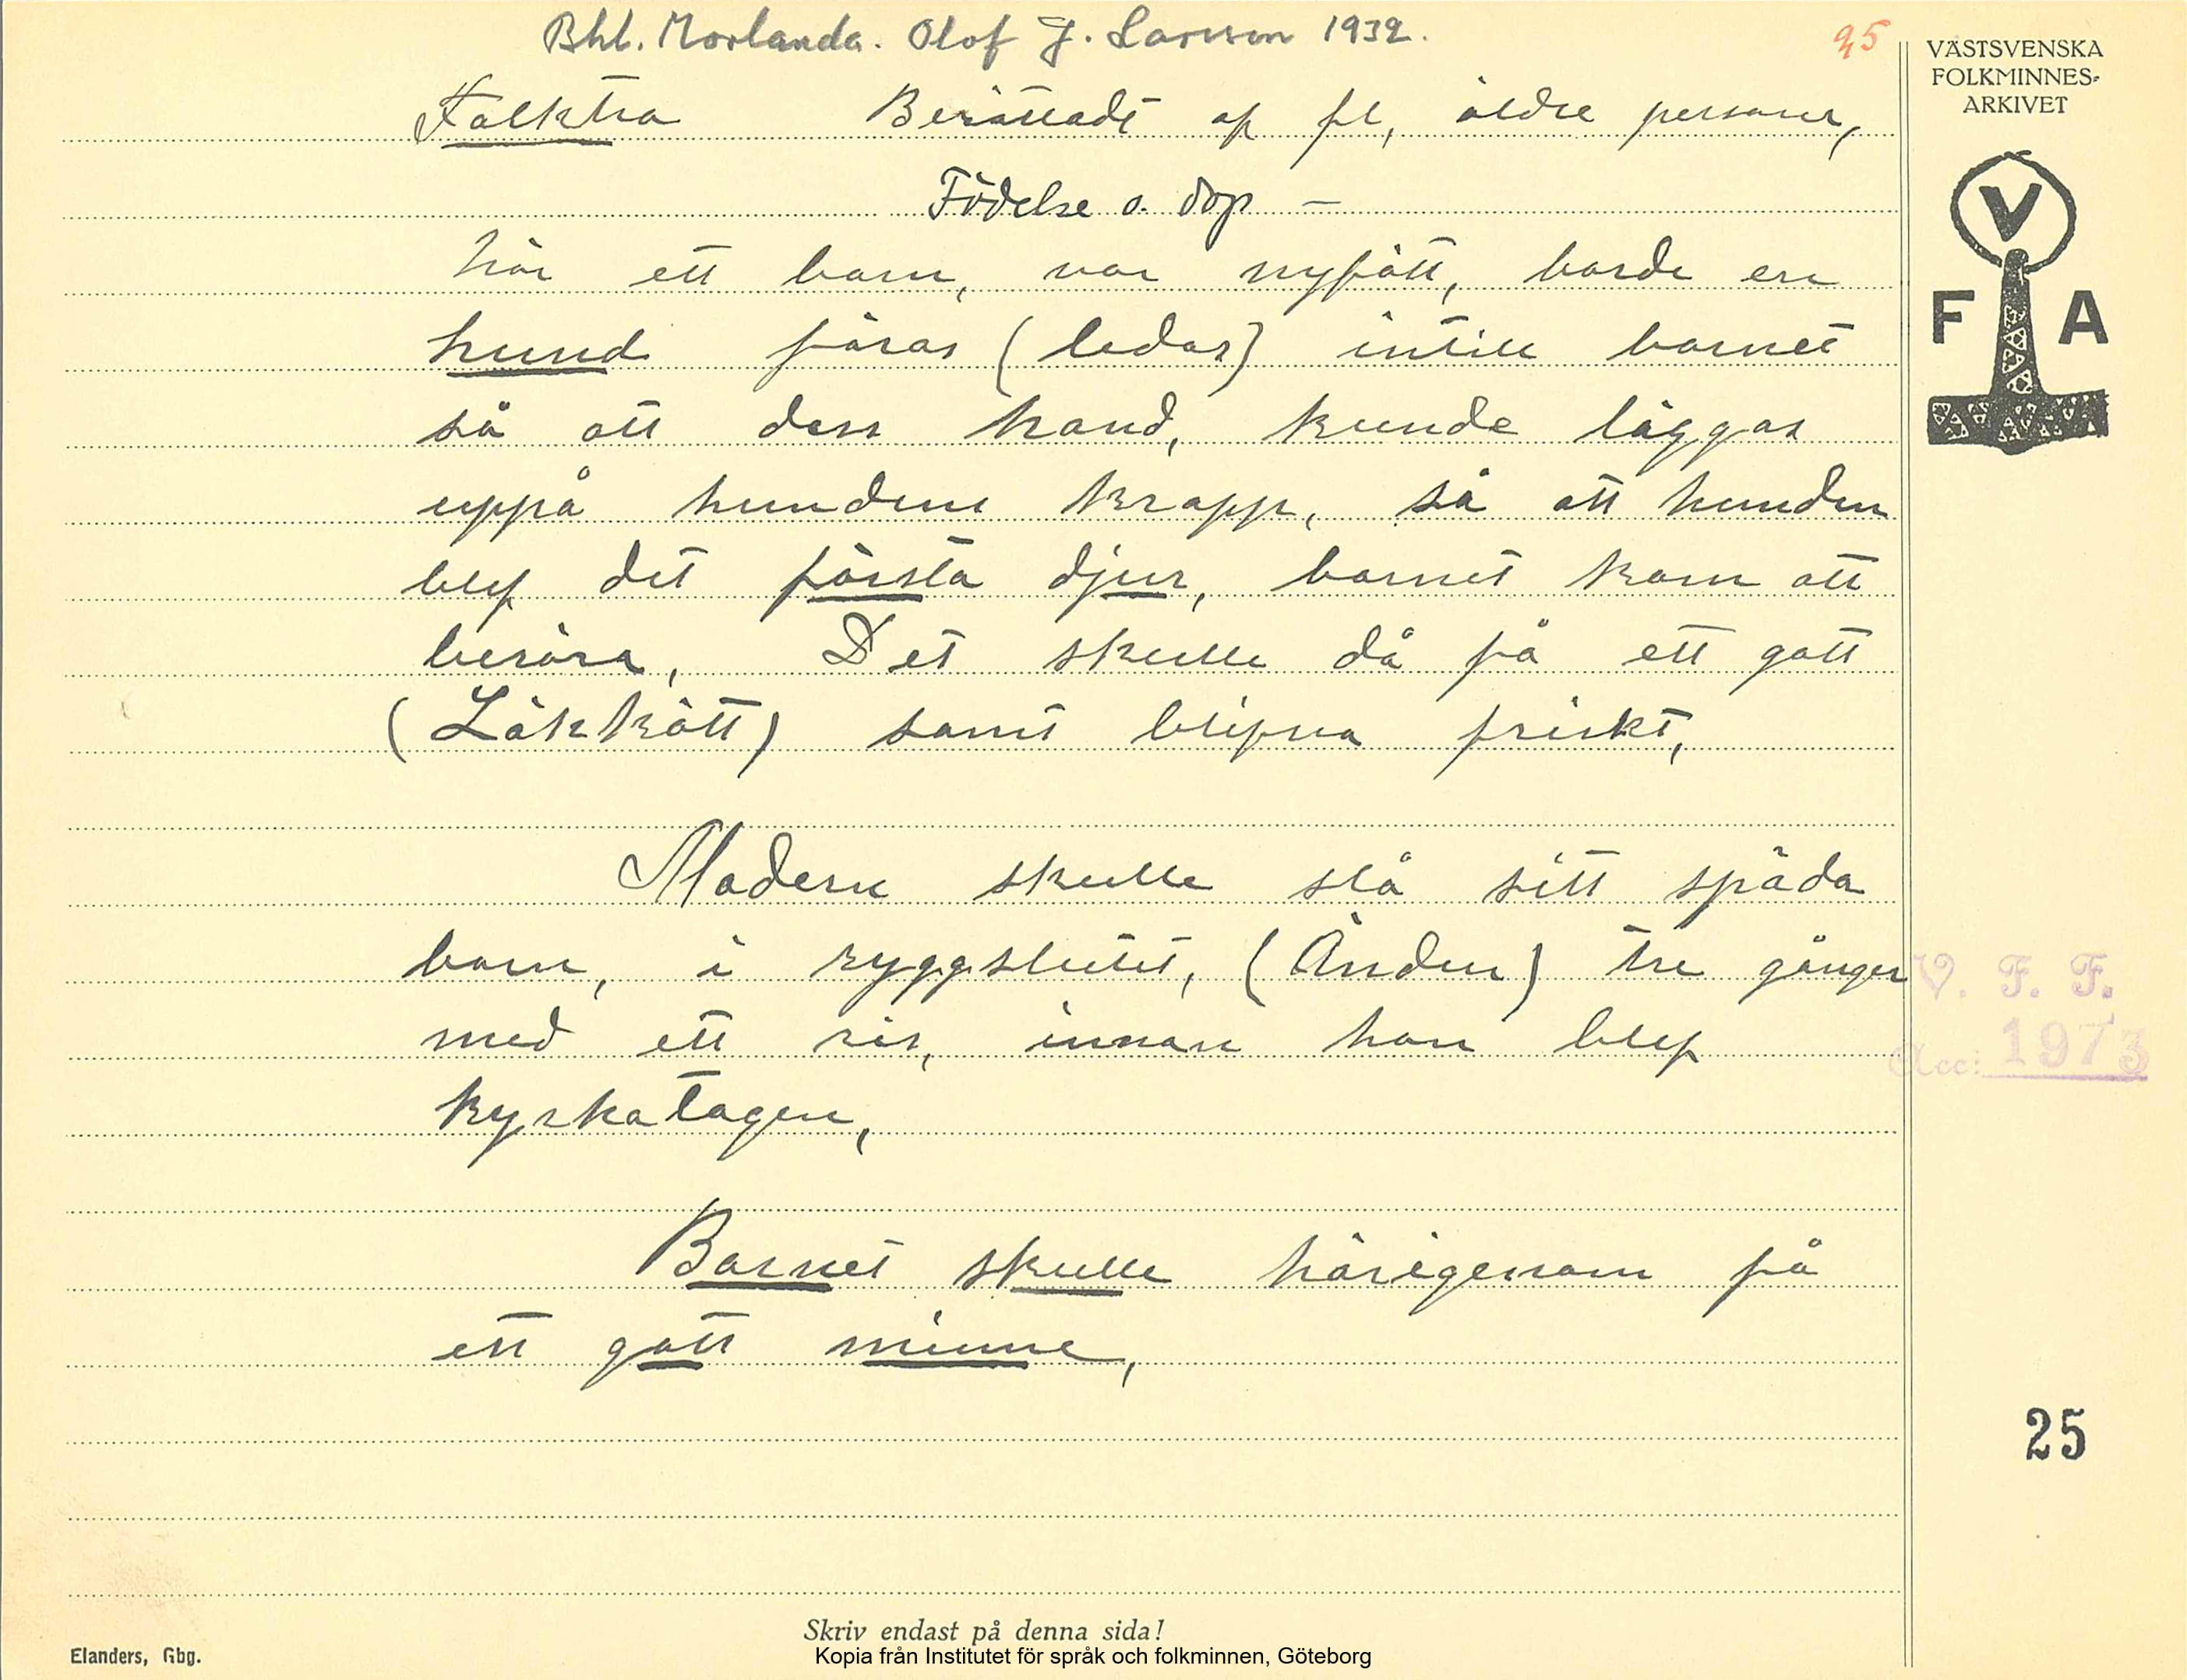 Bhl. Morlanda. Olof J. Larsson 1932.
95
VÄSTSVENSKA
FOLKMINNES-
ARKIVET
Folktro Berättadt af fl, äldre personer,
Födelse o. dop –
När ett barn, var nyfött, borde en
hund föras (ledas) intill barnet
så att dess hand, kunde läggas
uppå hundens kropp, så att hunden
blef det första djur, barnet kom att
beröra, Det skulle då få ett gott
(Läkkött) samt blifva friskt,
Modern skulle slå sitt späda
barn, i ryggslutet, (Änden) tre gånger
med ett ris, innan hon blef
kyrkotagen,
Barnet skulle härigenom få
ett gott minne,
V
F A
V. F. F.
Acc: 1973
25
Skriv endast på denna sida!
Elanders, Gbg.
Kopia från Institutet för språk och folkminnen, Göteborg